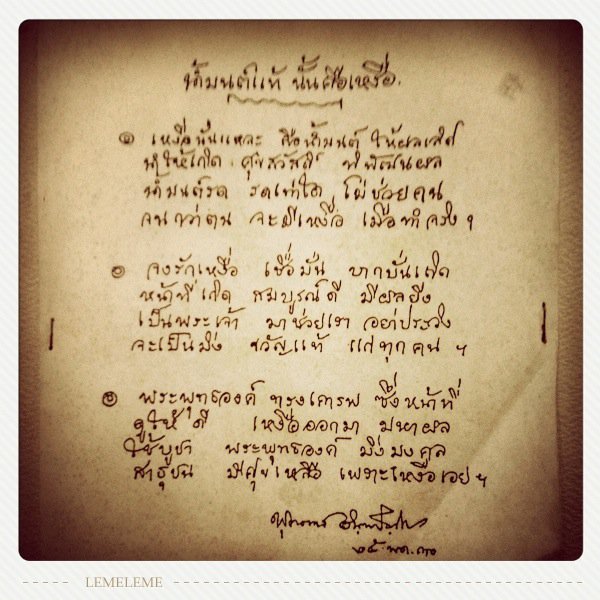 น้ำมนต์แท้ นั้นคือเหงื่อ.
๑ เหงื่อนั่นแหละ คือน้ำมนต์ ให้ผลเลิศ
ทำให้เกิด ศุขสวัสดิ์ พิพัฒนผล
น้ำมนต์รด รดเท่าใด ไม่ช่วยคน
จนกว่าตน จะมีเหงื่อ เมื่อทำจริง ฯ
๒ จงรักเหงื่อ เชื่อมั่น บากบั่นเถิด
หน้าที่เกิด สมบูรณ์ดี มีผลยิ่ง
เป็นพระเจ้า มาช่วยเรา อย่าประวิง
จะเป็นมิ่ง ขวัญแท้ แก่ทุกคน ฯ
๓ พระพุทธองค์ ทรงเคารพ ซึ่งหน้าที่
ดูให้ดี เหงื่อออกมา มหาผล
ใช้บูชา พระพุทธองค์ มิ่งมงคล
สาธุชน มีศุขเหลือ เพราะเหงื่อเอย ฯ
พุทธทาส อินทปัญโญ
๒๕ พ.ค. ๓๐
LEMELEME